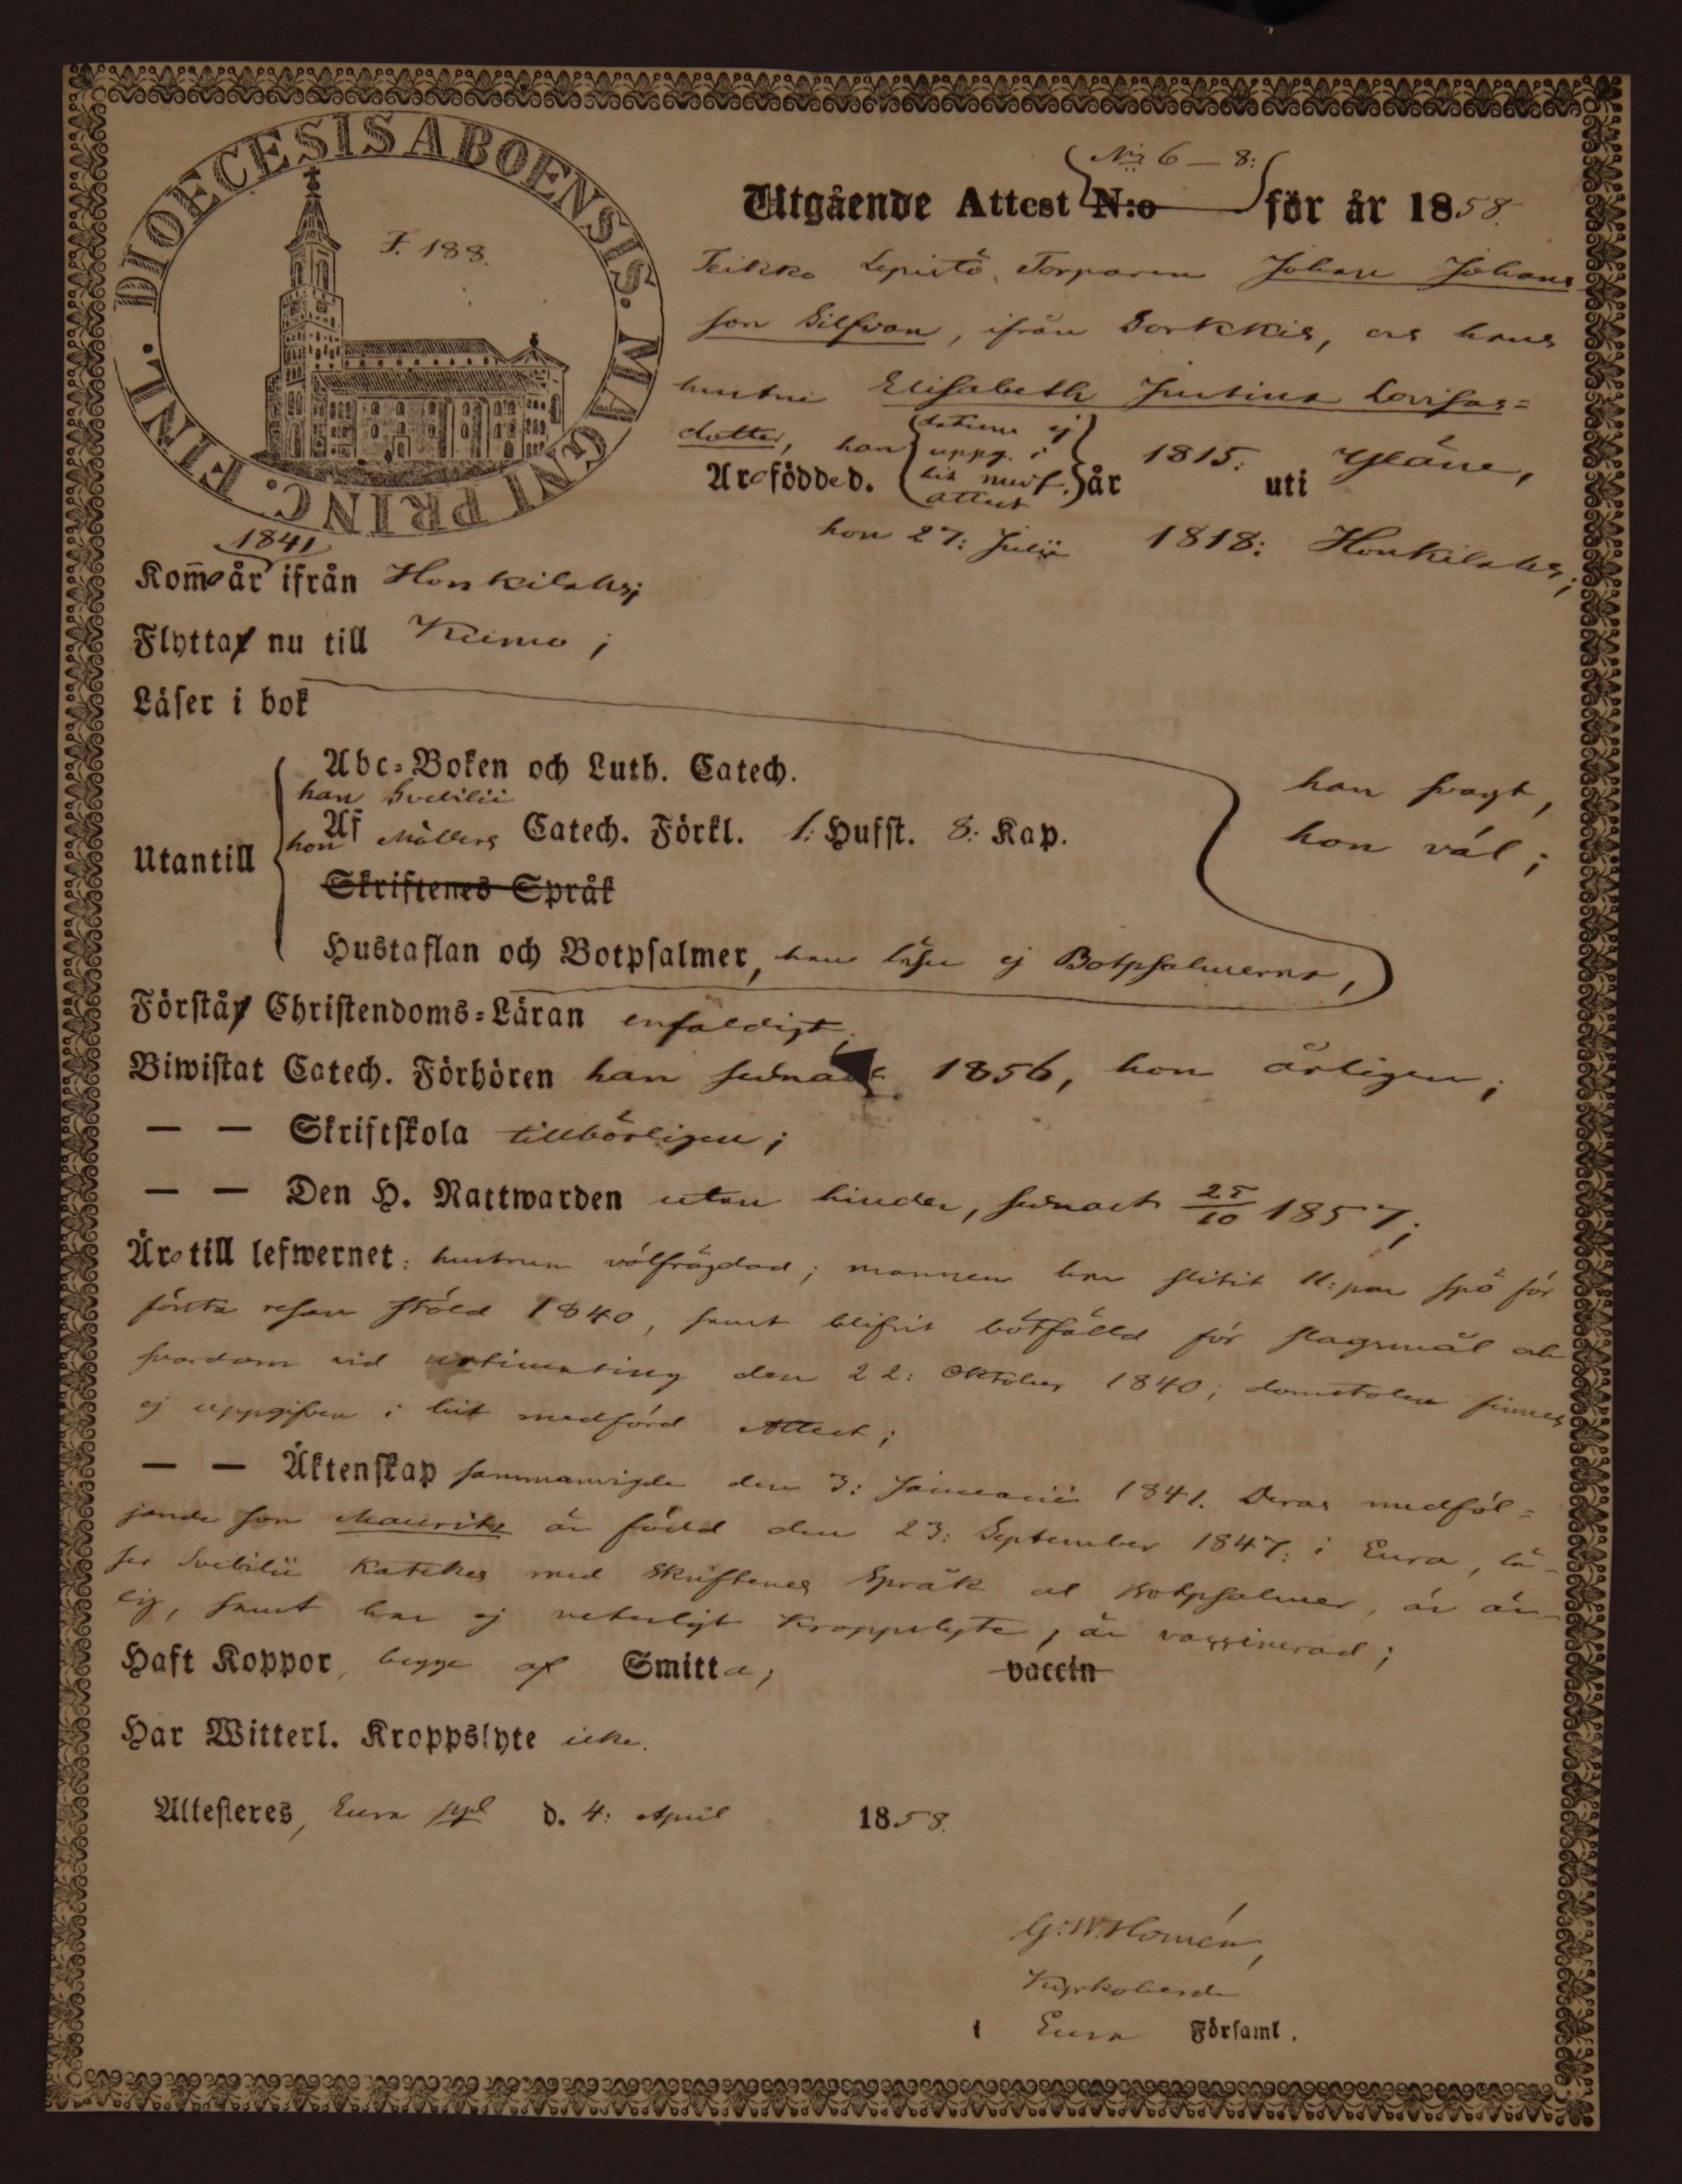 DIOECESIS ABOENSIS. MAGNI PRINC. FINL.
F. 188.
N:is 6 – 8:
Utgående Attest N:o för år 1858.
Teikko Lepistö Torparen Johan Johans
son Silfvan, ifrån Sorkkis, och hans
hustru Elisabeth Justina Lovisas=
dotter, han
Äro födde d. (datum ej uppg. i hit medf. attest) år 1815: uti Yläne,
hon 27: Julii 1818: Honkilahti;
1841
Kom̄o år ifrån Honkilahti;
Flytta nu till Kumo;
Läser i bok
Abc-Boken och Luth. Catech.
han Svebilii
Utantill
Af
hon Möllers Catech. Förkl. 1: Hufst. 8: Kap.
han svagt,
hon väl;
Skriftenes Språk
Hustaflan och Botpsalmer, han läser ej Botpsalmerna,
Förstå Christendoms-Läran enfaldigt;
Biwistat Catech. Förhören han sednast 1856, hon årligen;
— — Skriftskola tillbörligen;
— — Den H. Nattwarden utan hinder, sednast 25/10 1857;
Äro till lefwernet: hustrun välfrägdad; mannen har slitit 11: par spö för
första resan stöld 1840, samt blifvit bötfälld för slagsmål och
svordom vid ting den 22: Oktober 1840; domstolen finnes
ej uppgifven i hit medförd Attest;
— — Äktenskap sammanvigde den 3: Januarii 1841. Deras medföl=
jande son Mauritz är född den 23: September 1847: i Eura, lä-
ser Svebilii Katekes med Skriftenes Språk och Botpsalmer, är är-
lig, samt har ej veterligt Kroppslyte, är vaccinerad;
Haft Koppor, begge af Smitta; vaccin
Har Witterl. Kroppslyte icke.
Attesteres, Eura d. 4: April 1858.
G. W. Homén,
Kyrkoherde
i Eura Församl.